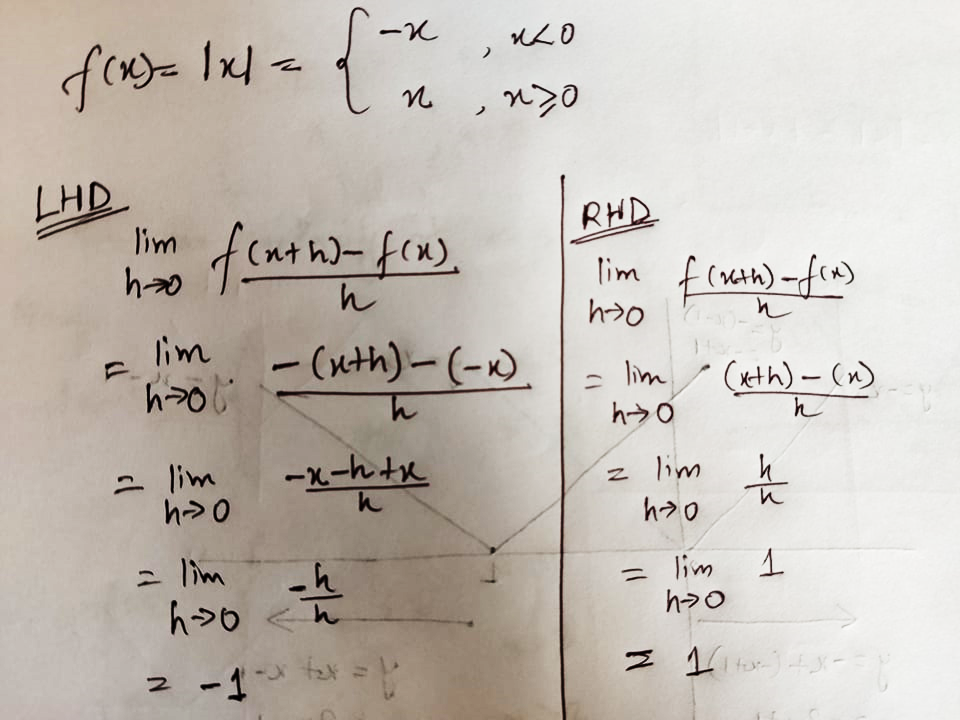 f(x) = |x| = { -x , x<0
x , x≥0
LHD
lim h→0 f(x+h) - f(x) / h
= lim h→0 -(x+h) - (-x) / h
= lim h→0 -x-h+x / h
= lim h→0 -h / h
= -1
RHD
lim h→0 f(x+h) - f(x) / h
= lim h→0 (x+h) - (x) / h
= lim h→0 h / h
= lim h→0 1
= 1